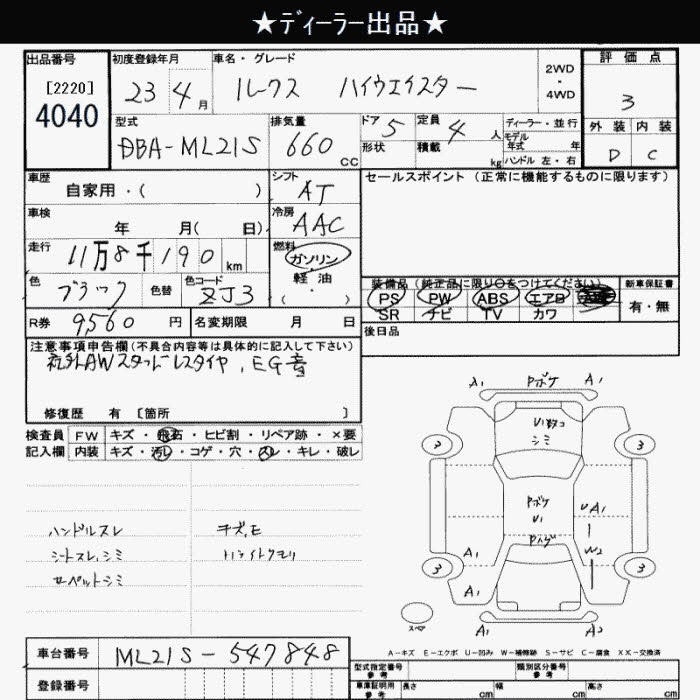 ★ディーラー出品★
出品番号 初度登録年月 車名・グレード 2WD・4WD 評価点
[2220] 23年4月 ルークス ハイウエイスター 3
4040
型式 排気量 ドア 定員 ディーラー・並行 外装 内装
DBA-ML21S 660cc 5 4人 モデル年式 年 D C
形状 積載 kg ハンドル 左・右
車歴 シフト セールスポイント(正常に機能するものに限ります)
自家用・( ) AT
車検 冷房
年 月( 日) AAC
走行 燃料
11万8千190km ガソリン
軽油
色 色替 色コード ・ 装備品(純正品に限り○をつけてください) 新車保証書
ブラック ZJ3 ( ) PS PW ABS エアB 有・無
SR ナビ TV カワ
R券 9560円 名変期限 月 日 後日品
注意事項申告欄(不具合内容等は具体的に記入して下さい)
社外AWスタッドレスタイヤ,EG音
修復歴 有 [箇所 ]
検査員 FW キズ・飛石・ヒビ割・リペア跡・×要
記入欄 内装 キズ・汚レ・コゲ・穴・スレ・キレ・破レ
A1 Pボケ A1
U1数コ
シミ
3 3
Pボケ
U1 UA1
Pハゲ
A1 W2
3 3
A1
スペア A1 A2
ハンドルスレ チズ,モ
シートスレ,シミ ヘッドライトクモリ
カーペットシミ
A−キズ E−エクボ U−凹み W−補修跡 S−サビ C−腐食 XX−交換済
車台番号 ML21S-547848
登録番号
型式指定番号 参考 類別区分番号 参考
車庫証明用 参考 長さ cm 幅 cm 高さ cm